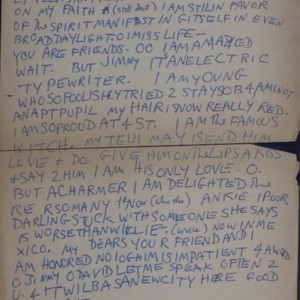 MY FAITH I AM STILIN FAVOR
OF THE SPIRIT MANIFEST IN GITSELF IN EVEN
BROADDAYLIGHTOIMISS LIFE—
YOU ARE FRIENDS-OO IAMAMAZED
WAIT. BUT JIMMY ITANELECTRIC
TYPEWRITER. I AMYOUNG
WHOSOFOOLISHLYTRIED 2 STAYSOB4AMINOT
ANAPTPUPIL. MYHAIRISNOWREALLY RED.
IAMSOPROUD AT 4 ST. IAMTHEFAMOUS
WITCH. MY MAY I SEND HIM
LOVE + DO. GIVEHIMONTHELIPSAKISS
+SAY 2HIM IAMHISONLYLOVE. O.
BUT ACHARMER IAMDELIGHTED
RE RSOMANY NOW ANKIE IPOOR
DARLINGSTUCKWITHSOMEONE SHE SAYS
IS WORSETHANWIELIE. NOW INME
XICO. MY DEARS YOUR FRIENDAND
AM HONORED NO HIMISIMPATIENT 4 A
O JIMMY O DAVIDLETME SPEAK OFTEN 2
U. 4 ITWILBASANEWCITYHERE GOOD